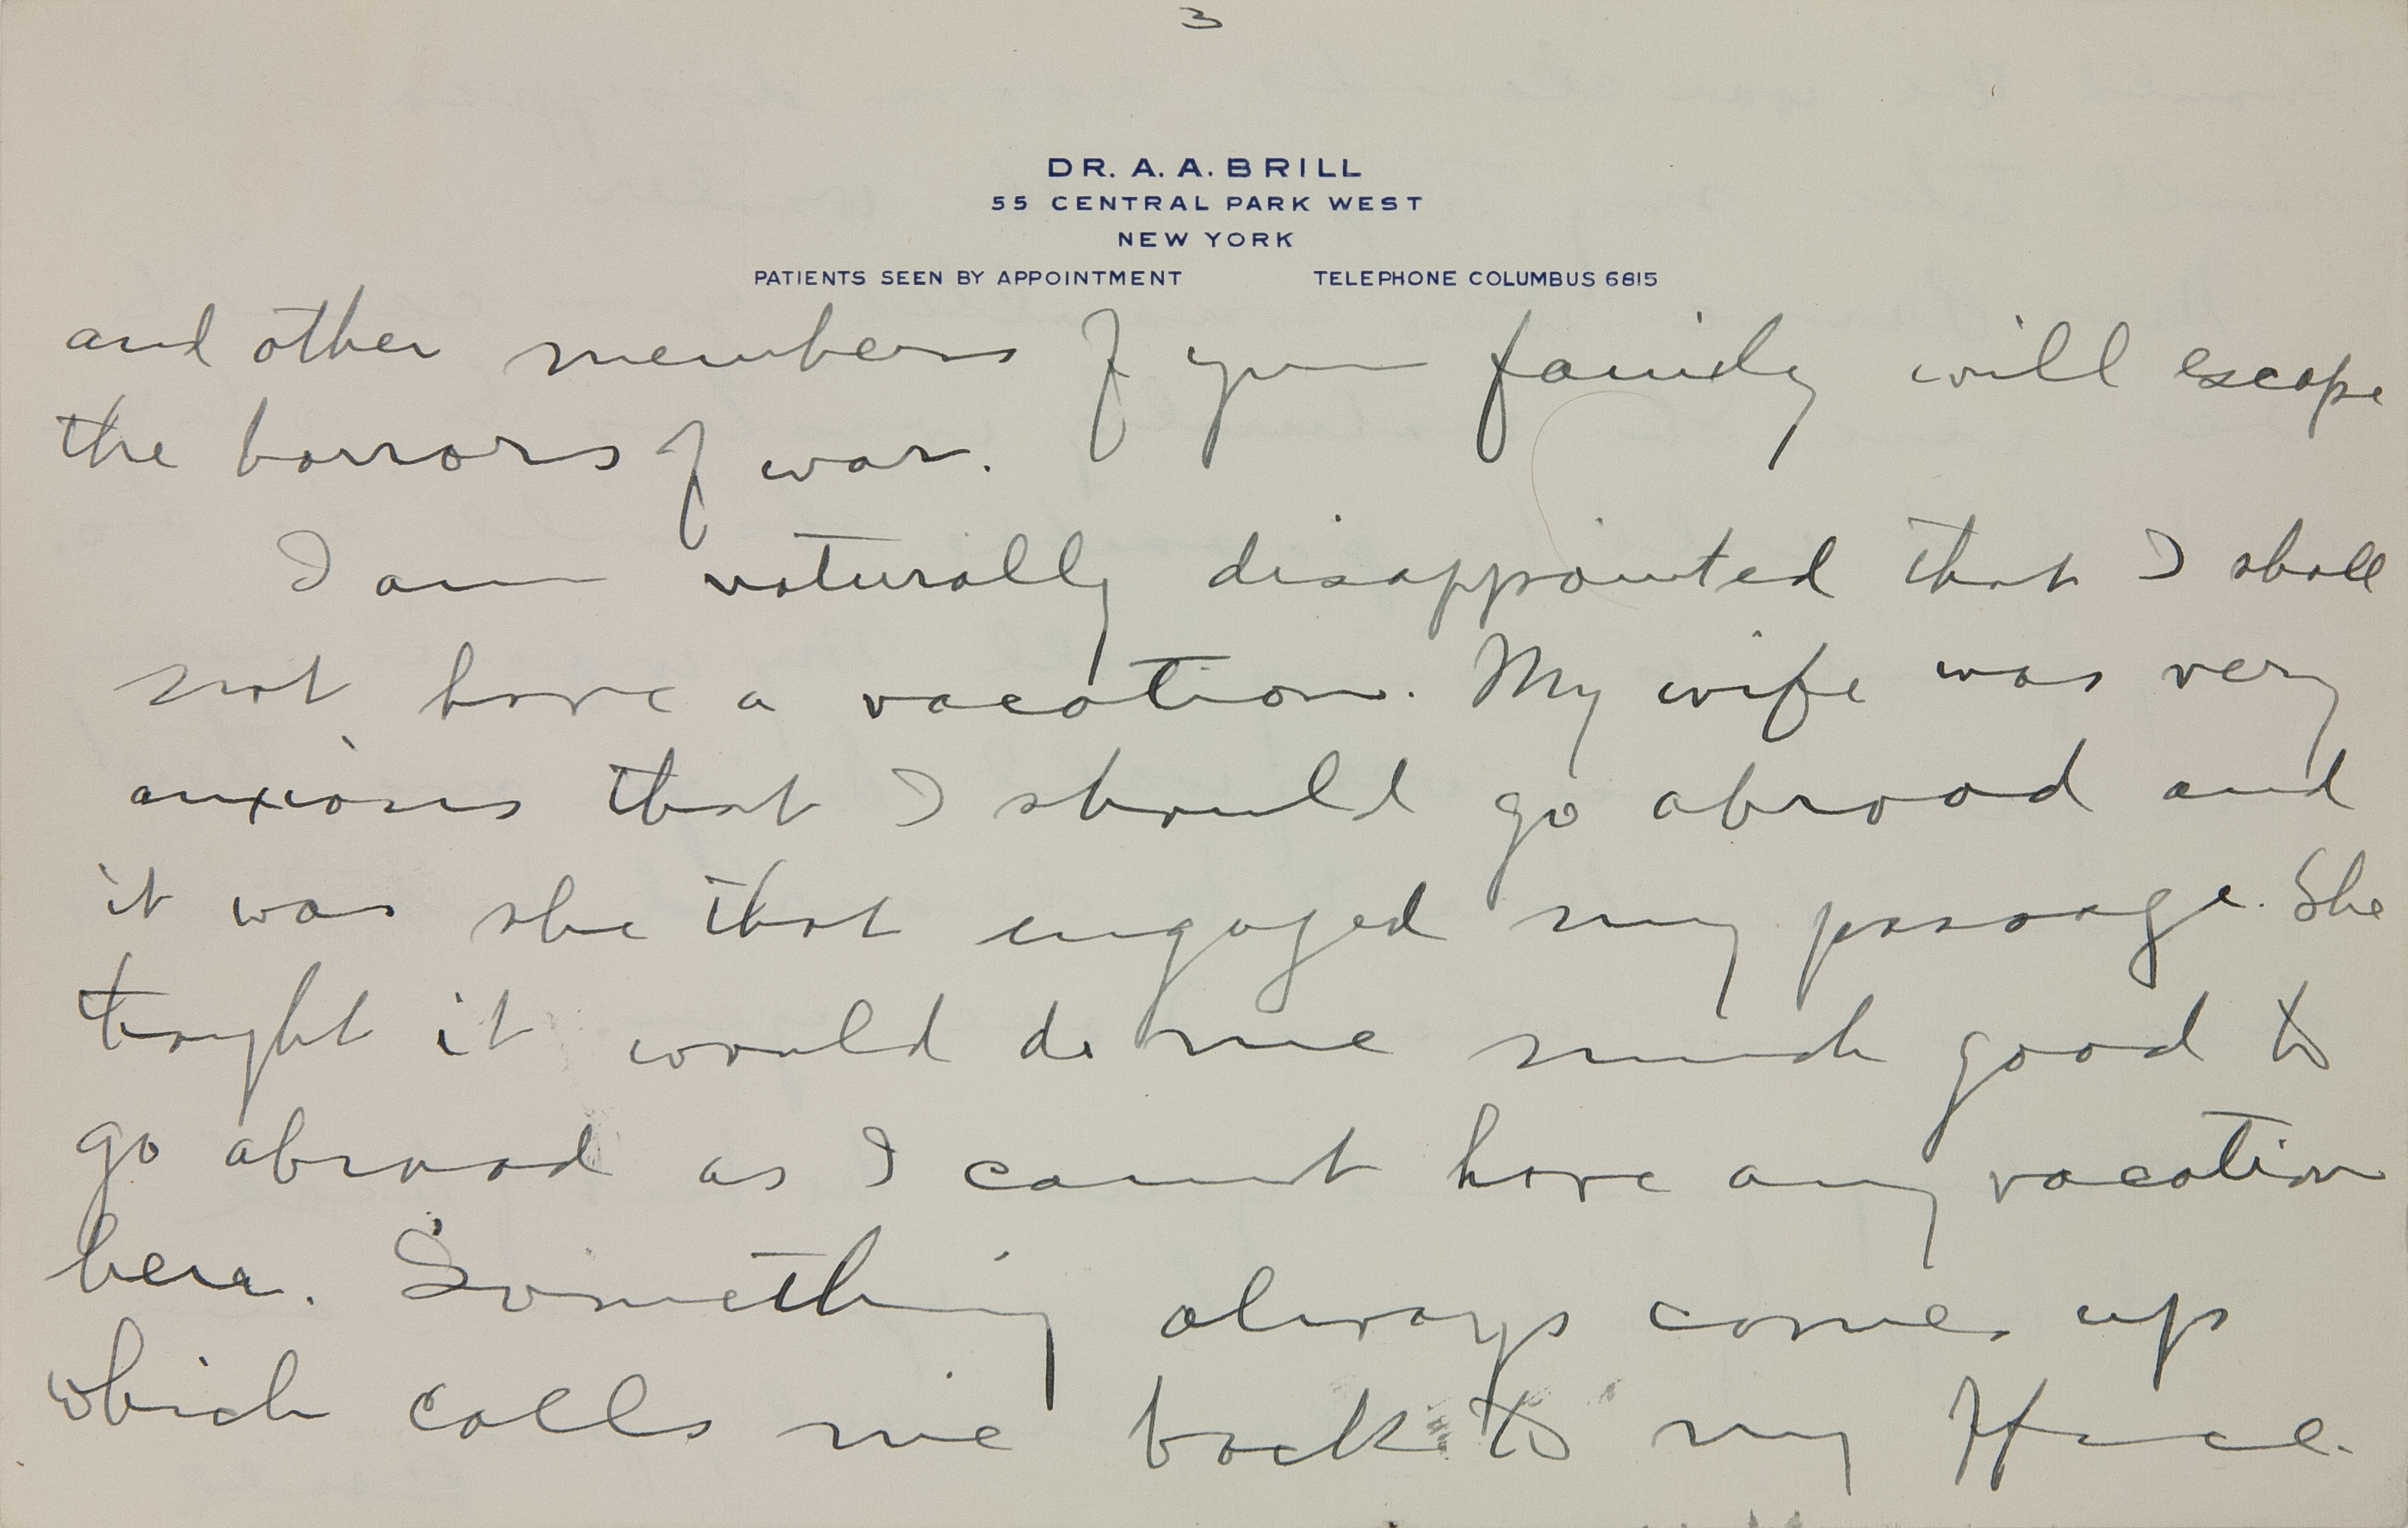 3
DR. A. A. BRILL
55 CENTRAL PARK WEST
NEW YORK
PATIENTS SEEN BY APPOINTMENT TELEPHONE COLUMBUS 6815
and other members of your family will escape
the horrors of war.
I am naturally disappointed that I shall
not have a vacation. My wife was very
anxious that I should go abroad and
it was she that engaged my passage. She
thought it would do me much good to
go abroad as I cannot have any vacation
here. Something always comes up
which calls me back to my office.